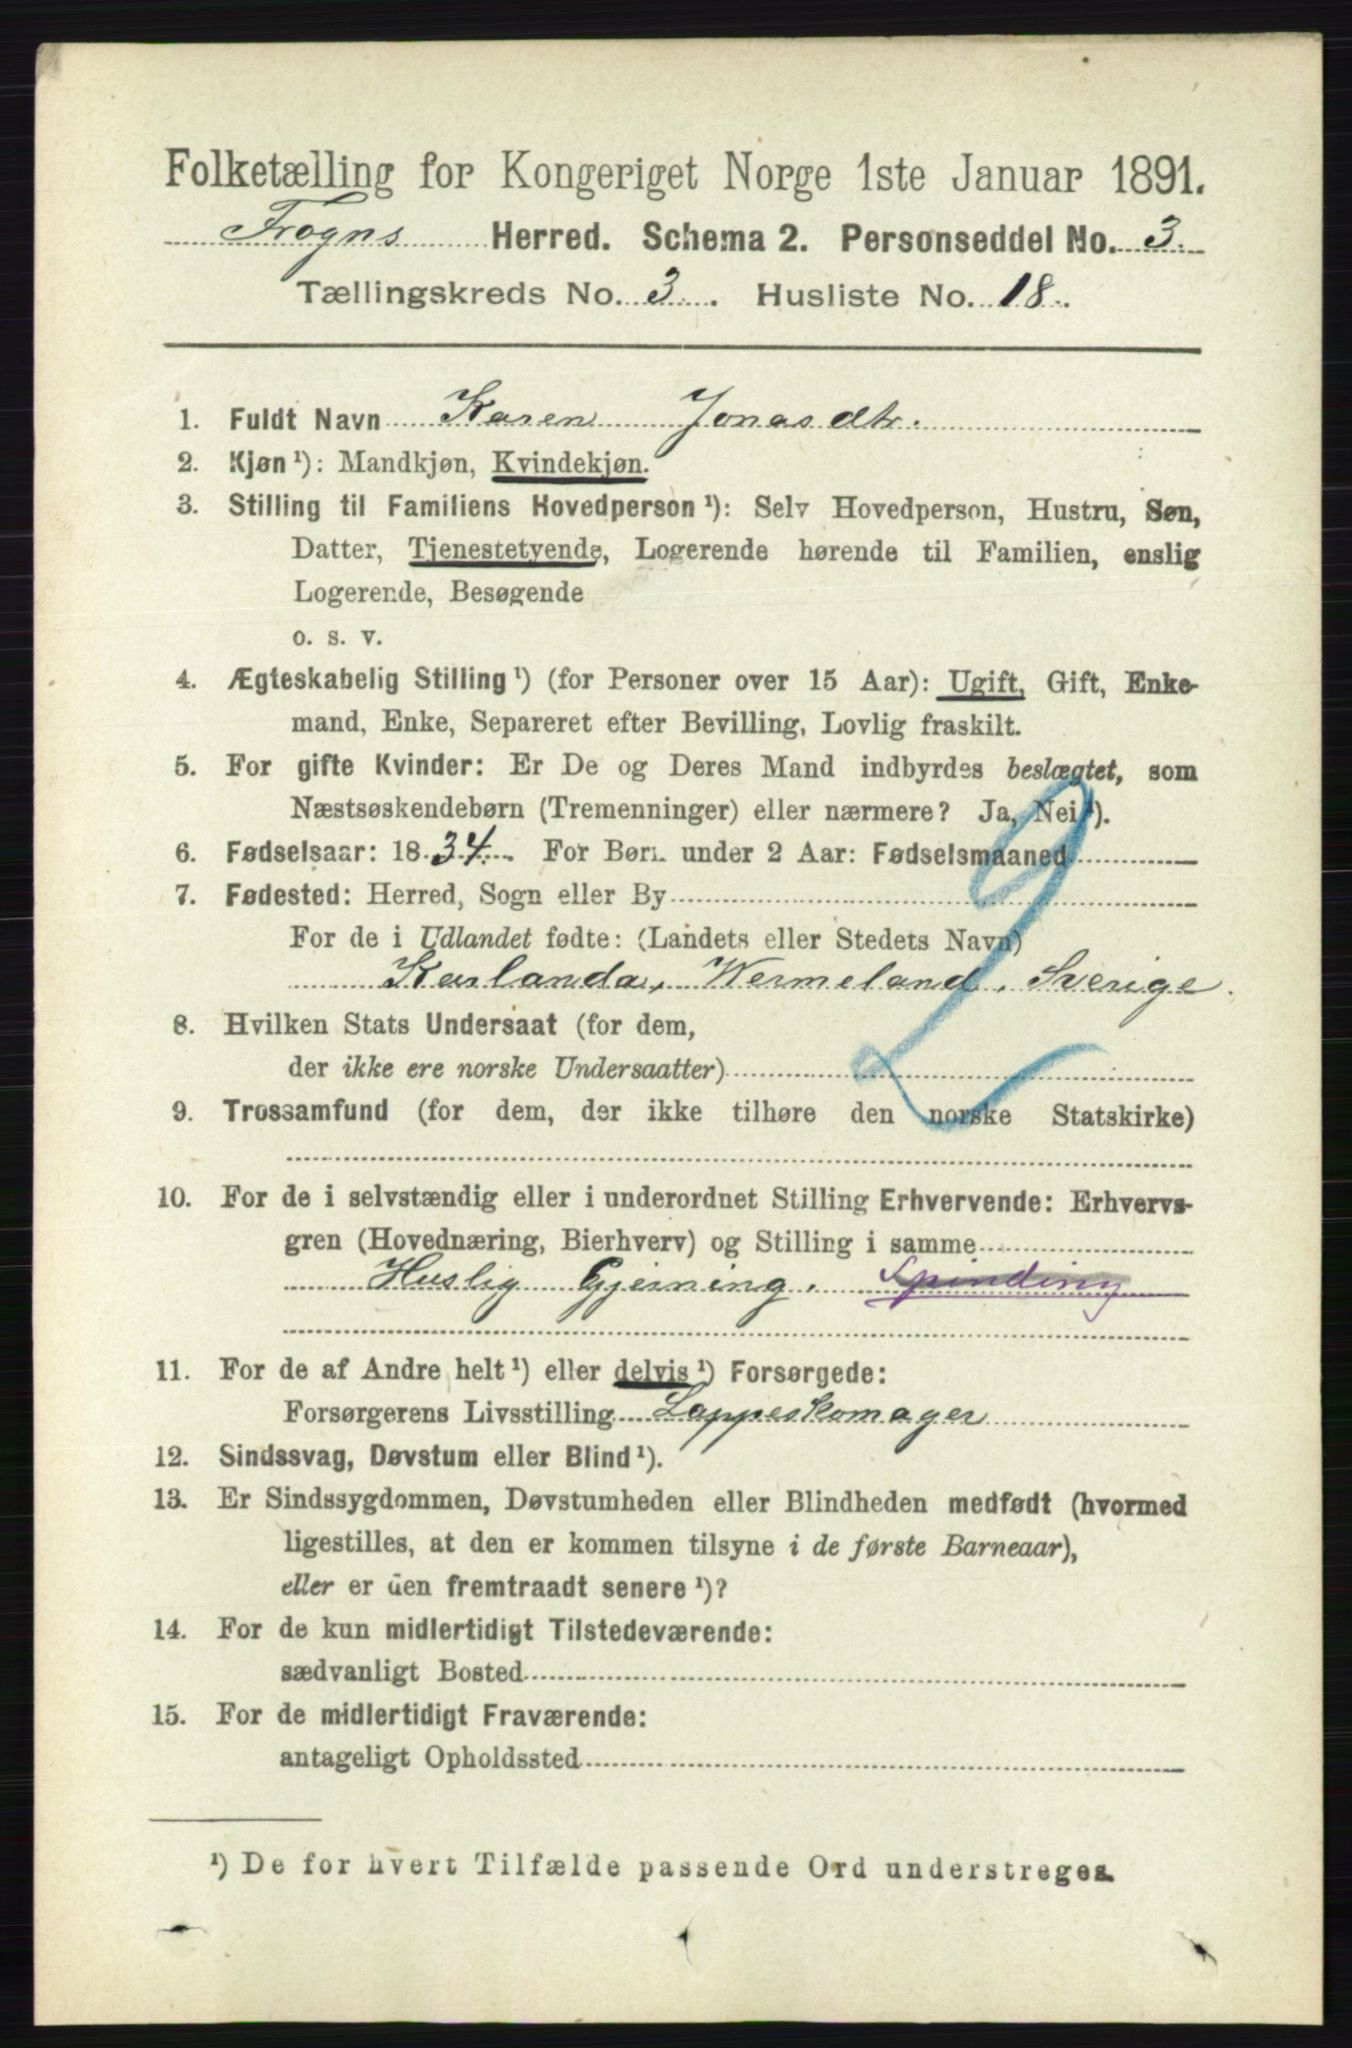 Folketælling for Kongeriget Norge 1ste Januar 1891.
Frogns Herred. Schema 2. Personseddel No. 3.
Tællingskreds No. 3. Husliste No. 18.
1. Fuldt Navn Karen Jonasdtr.
2. Kjøn ¹): Mandkjøn, Kvindekjøn.
3. Stilling til Familiens Hovedperson ¹): Selv Hovedperson, Hustru, Søn,
Datter, Tjenestetyende, Logerende hørende til Familien, enslig
Logerende, Besøgende
o. s. v.
4. Ægteskabelig Stilling ¹) (for Personer over 15 Aar): Ugift, Gift, Enke-
mand, Enke, Separeret efter Bevilling, Lovlig fraskilt.
5. For gifte Kvinder: Er De og Deres Mand indbyrdes beslægtet, som
Næstsøskendebørn (Tremenninger) eller nærmere? Ja, Nei ¹).
6. Fødselsaar: 1834. For Børn under 2 Aar: Fødselsmaaned
7. Fødested: Herred, Sogn eller By
For de i Udlandet fødte: (Landets eller Stedets Navn)
Karlanda, Wermeland, Sverige.
8. Hvilken Stats Undersaat (for dem,
der ikke ere norske Undersaatter)
9. Trossamfund (for dem, der ikke tilhøre den norske Statskirke)
10. For de i selvstændig eller i underordnet Stilling Erhvervende: Erhvervs-
gren (Hovednæring, Bierhverv) og Stilling i samme
Huslig Gjerning. Spinding
11. For de af Andre helt ¹) eller delvis ¹) Forsørgede:
Forsørgerens Livsstilling Lappeskomager
12. Sindssvag, Døvstum eller Blind ¹).
13. Er Sindssygdommen, Døvstumheden eller Blindheden medfødt (hvormed
ligestilles, at den er kommen tilsyne i de første Barneaar),
eller er den fremtraadt senere ¹)?
14. For de kun midlertidigt Tilstedeværende:
sædvanligt Bosted
15. For de midlertidigt Fraværende:
antageligt Opholdssted
¹) De for hvert Tilfælde passende Ord understreges.
2